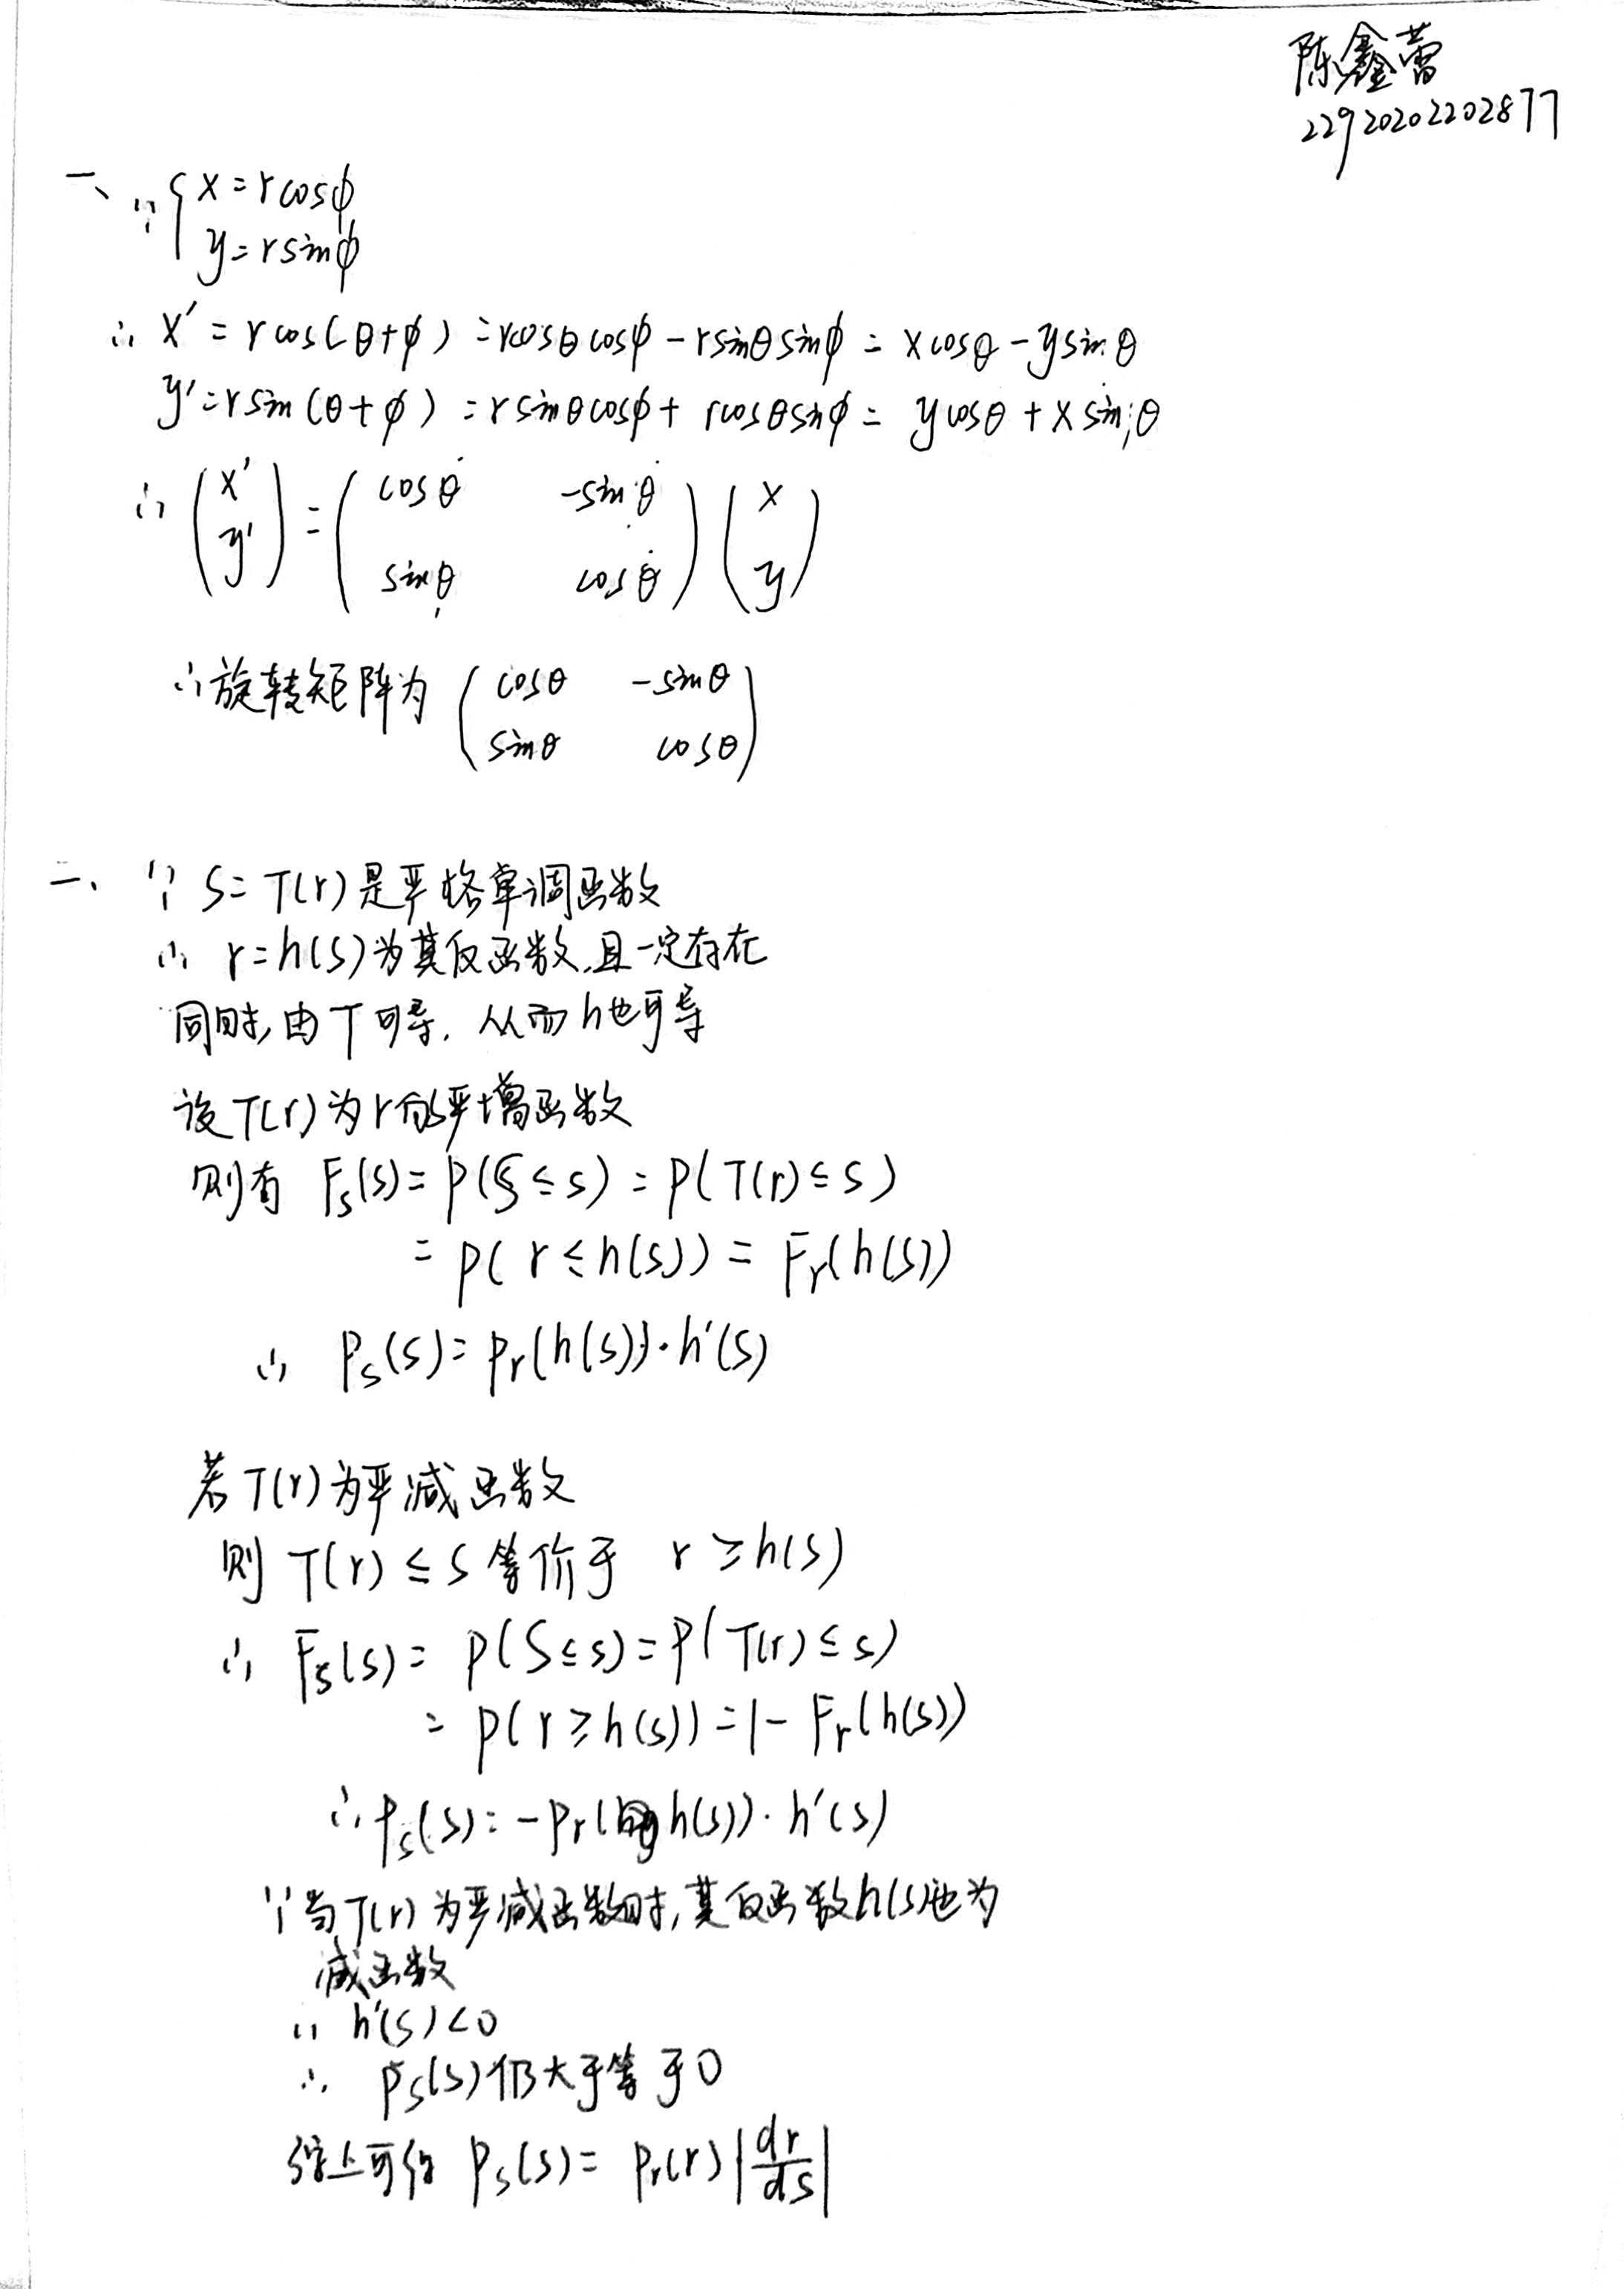 陈鑫蕾
22920202202877
一、∵ { x = r cosϕ
y = r sinϕ
∴ x' = r cos(θ+ϕ) = rcosθ cosϕ - r sinθ sinϕ = x cosθ - y sinθ
y' = r sin(θ+ϕ) = r sinθ cosϕ + r cosθ sinϕ = y cosθ + x sinθ
∴ (x' y') = (cosθ -sinθ sinθ cosθ) (x y)
∴ 旋转矩阵为 (cosθ -sinθ
sinθ cosθ)
二、∵ S = T(r) 是严格单调函数
∴ r = h(s) 为其反函数,且一定存在
同时,由T可导,从而h也可导
设T(r)为r的严增函数
则有 Fs(s) = P(S ≤ s) = P(T(r) ≤ s)
= P(r ≤ h(s)) = Fr(h(s))
∴ Ps(s) = Pr(h(s))·h'(s)
若T(r)为严减函数
则 T(r) ≤ s 等价于 r ≥ h(s)
∴ Fs(s) = P(S ≤ s) = P(T(r) ≤ s)
= P(r ≥ h(s)) = 1 - Fr(h(s))
∴ Ps(s) = -Pr(h(s))·h'(s)
∵ 当T(r)为严减函数时,其反函数h(s)也为
减函数
∴ h'(s) < 0
∴ Ps(s)仍大于等于0
综上可得 Ps(s) = Pr(r) |dr/ds|